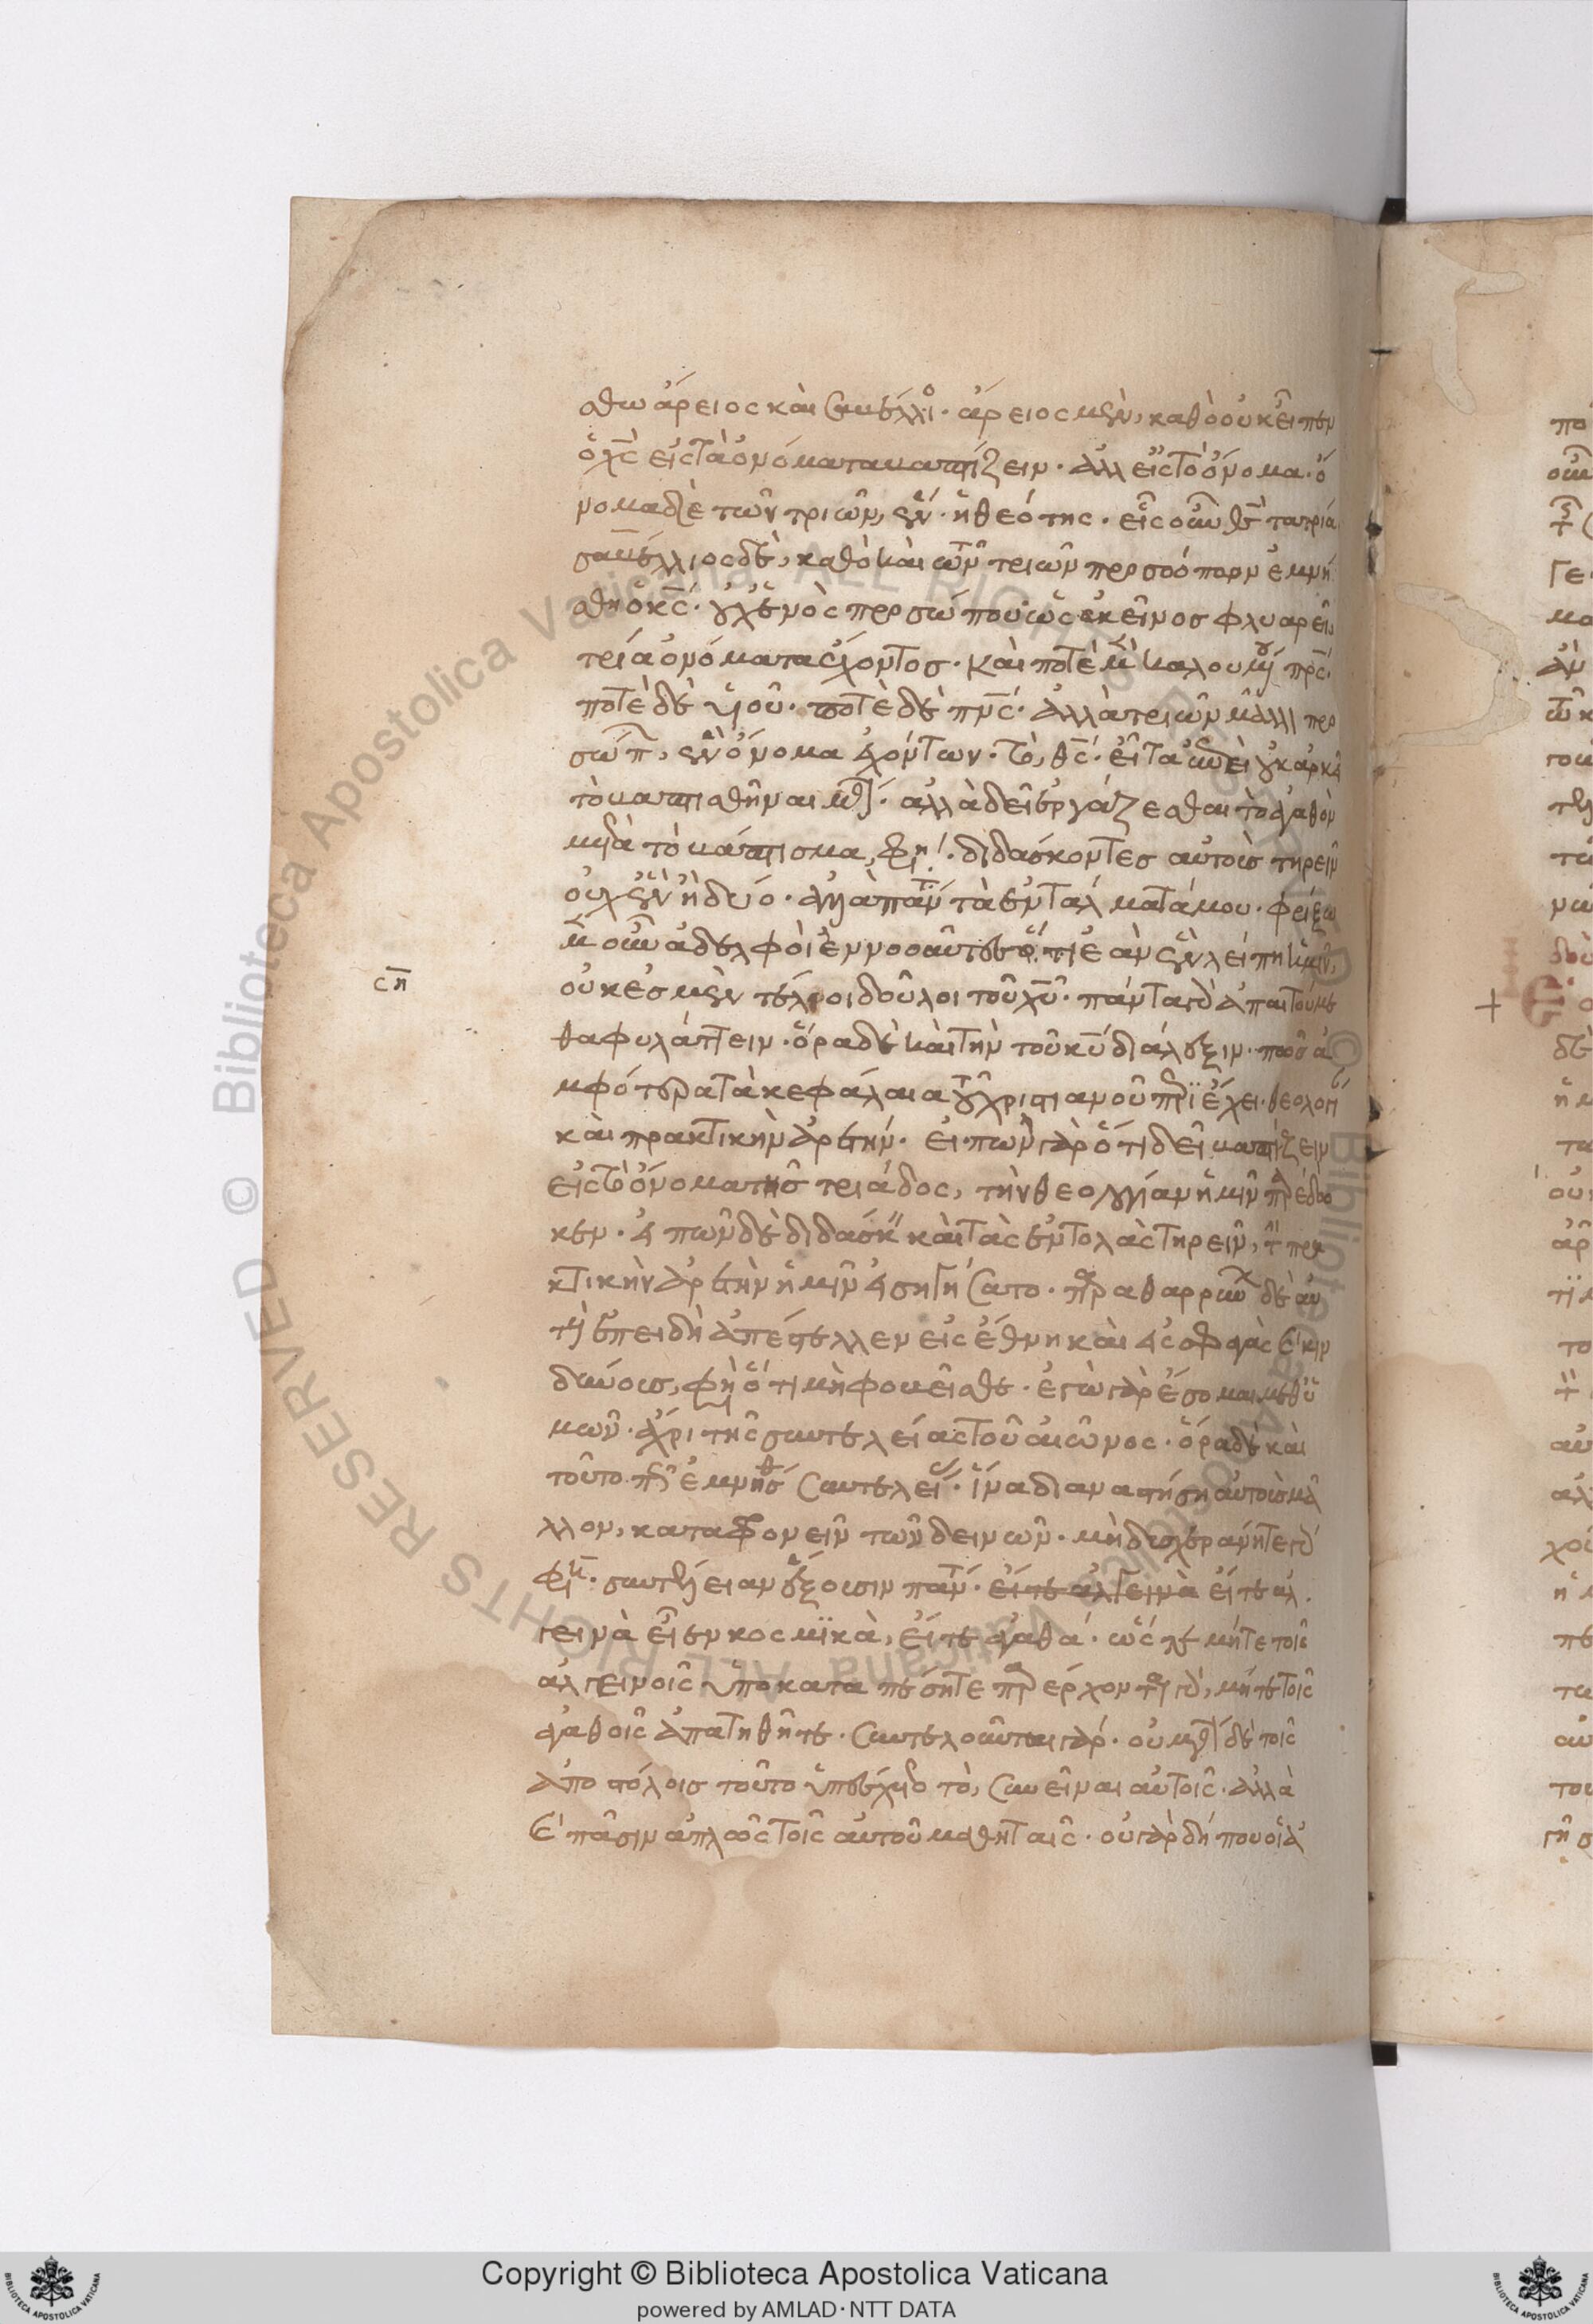 σθω ἄρειος καὶ σαβέλλιος. ἄρειος μὲν, καθὸ οὐκ εἶπεν
ὁ χς εἰς τὰ ὀνόματα βαπτίζειν. ἀλλ εἰς τὸ ὄνομα. ὄ
νομα δὲ τῶν τριῶν, ἕν. ἡ θεότης. εἷς οὖν θς τὰ τρία
σαβέλλιος δὲ, καθὸ καὶ τῶν τριῶν προσώπων ἐμνή
σθη ὁ κς. οὐχ ἑνὸς προσώπου ὡς ἐκεῖνος φλυαρεῖ,
τρία ὀνόματα ἔχοντος. καὶ ποτὲ μὲν καλουμένου πρς.
ποτὲ δὲ υἱοῦ. ποτὲ δὲ πνς. ἀλλὰ τριῶν μᾶλλον προ
σώπων, ἓν ὄνομα ἐχόντων. τὸ, θς. εἶτα ἐπεὶ οὐκ ἀρκεῖ
τὸ βαπτισθῆναι μόνον. ἀλλὰ δεῖ ἐργάζεσθαι τὸ ἀγαθὸν
μετὰ τὸ βάπτισμα, φησὶ. διδάσκοντες αὐτοὺς τηρεῖν
οὐχ ἓν ἢ δύο. ἀλλὰ πάντα τὰ ἐντάλματά μου. φρίξω
μεν οὖν ἀδελφοὶ ἐννοοῦντες ὅτι ἐὰν ἓν λείπη ἡμῖν,
οὐκ ἐσμὲν τέλειοι δοῦλοι τοῦ χυ. πάντα γὰρ ἀπαιτούμε
σῃ
θα φυλάττειν. ὅρα δὲ καὶ τὴν τοῦ κυ διάλεξιν. πῶς ἀ
μφότερα τὰ κεφάλαια τοῦ χριστιανοῦ περιέχει. θεολογίαν
καὶ πρακτικὴν ἀρετήν. εἰπὼν γὰρ ὅτι δεῖ βαπτίζειν
εἰς τὸ ὄνομα τῆς τριάδος, τὴν θεολογίαν ἡμῖν παρέδω
κεν. εἰπὼν δὲ διδάσκειν καὶ τὰς ἐντολὰς τηρεῖν, τὴν πρα
κτικὴν ἀρετὴν ἡμῖν εἰσηγήσατο. παραθαρρύνων δὲ αὐ
τοὺς ἐπειδὴ ἀπέστελλεν εἰς ἔθνη καὶ εἰς σφαγὰς καὶ κιν
δύνους, φησὶν ὅτι μὴ φοβεῖσθε. ἐγὼ γὰρ ἔσομαι μεθ ὑ
μῶν. ἄχρι τῆς συντελείας τοῦ αἰῶνος. ὅρα δὲ καὶ
τοῦτο πῶς ἐμνήσθη συντελείας. ἵνα διαναστήση αὐτοὺς μᾶ
λλον, καταφρονεῖν τῶν δεινῶν. μὴ δυσχεραίνητε γὰρ
φησὶν. συντέλειαν ἕξουσιν πάντα. εἴτε ἀλγεινὰ εἴτε ἀλ
γεινὰ εἶεν κοσμϊκὰ, εἴτε ἀγαθά. ὥστε μήτε τοῖς
ἀλγεινοῖς ὑποκαταπέσητε παρέρχονται γὰρ, μήτε τοῖς
ἀγαθοῖς ἀπατηθῆτε. συντελοῦνται γάρ. οὐ μόνον δὲ τοῖς
ἀποστόλοις τοῦτο ὑπέσχετο τὸ, συνεῖναι αὐτοῖς. ἀλλὰ
καὶ πᾶσιν ἁπλῶς τοῖς αὐτοῦ μαθηταῖς. οὐ γὰρ δήπου οἱ ἀ